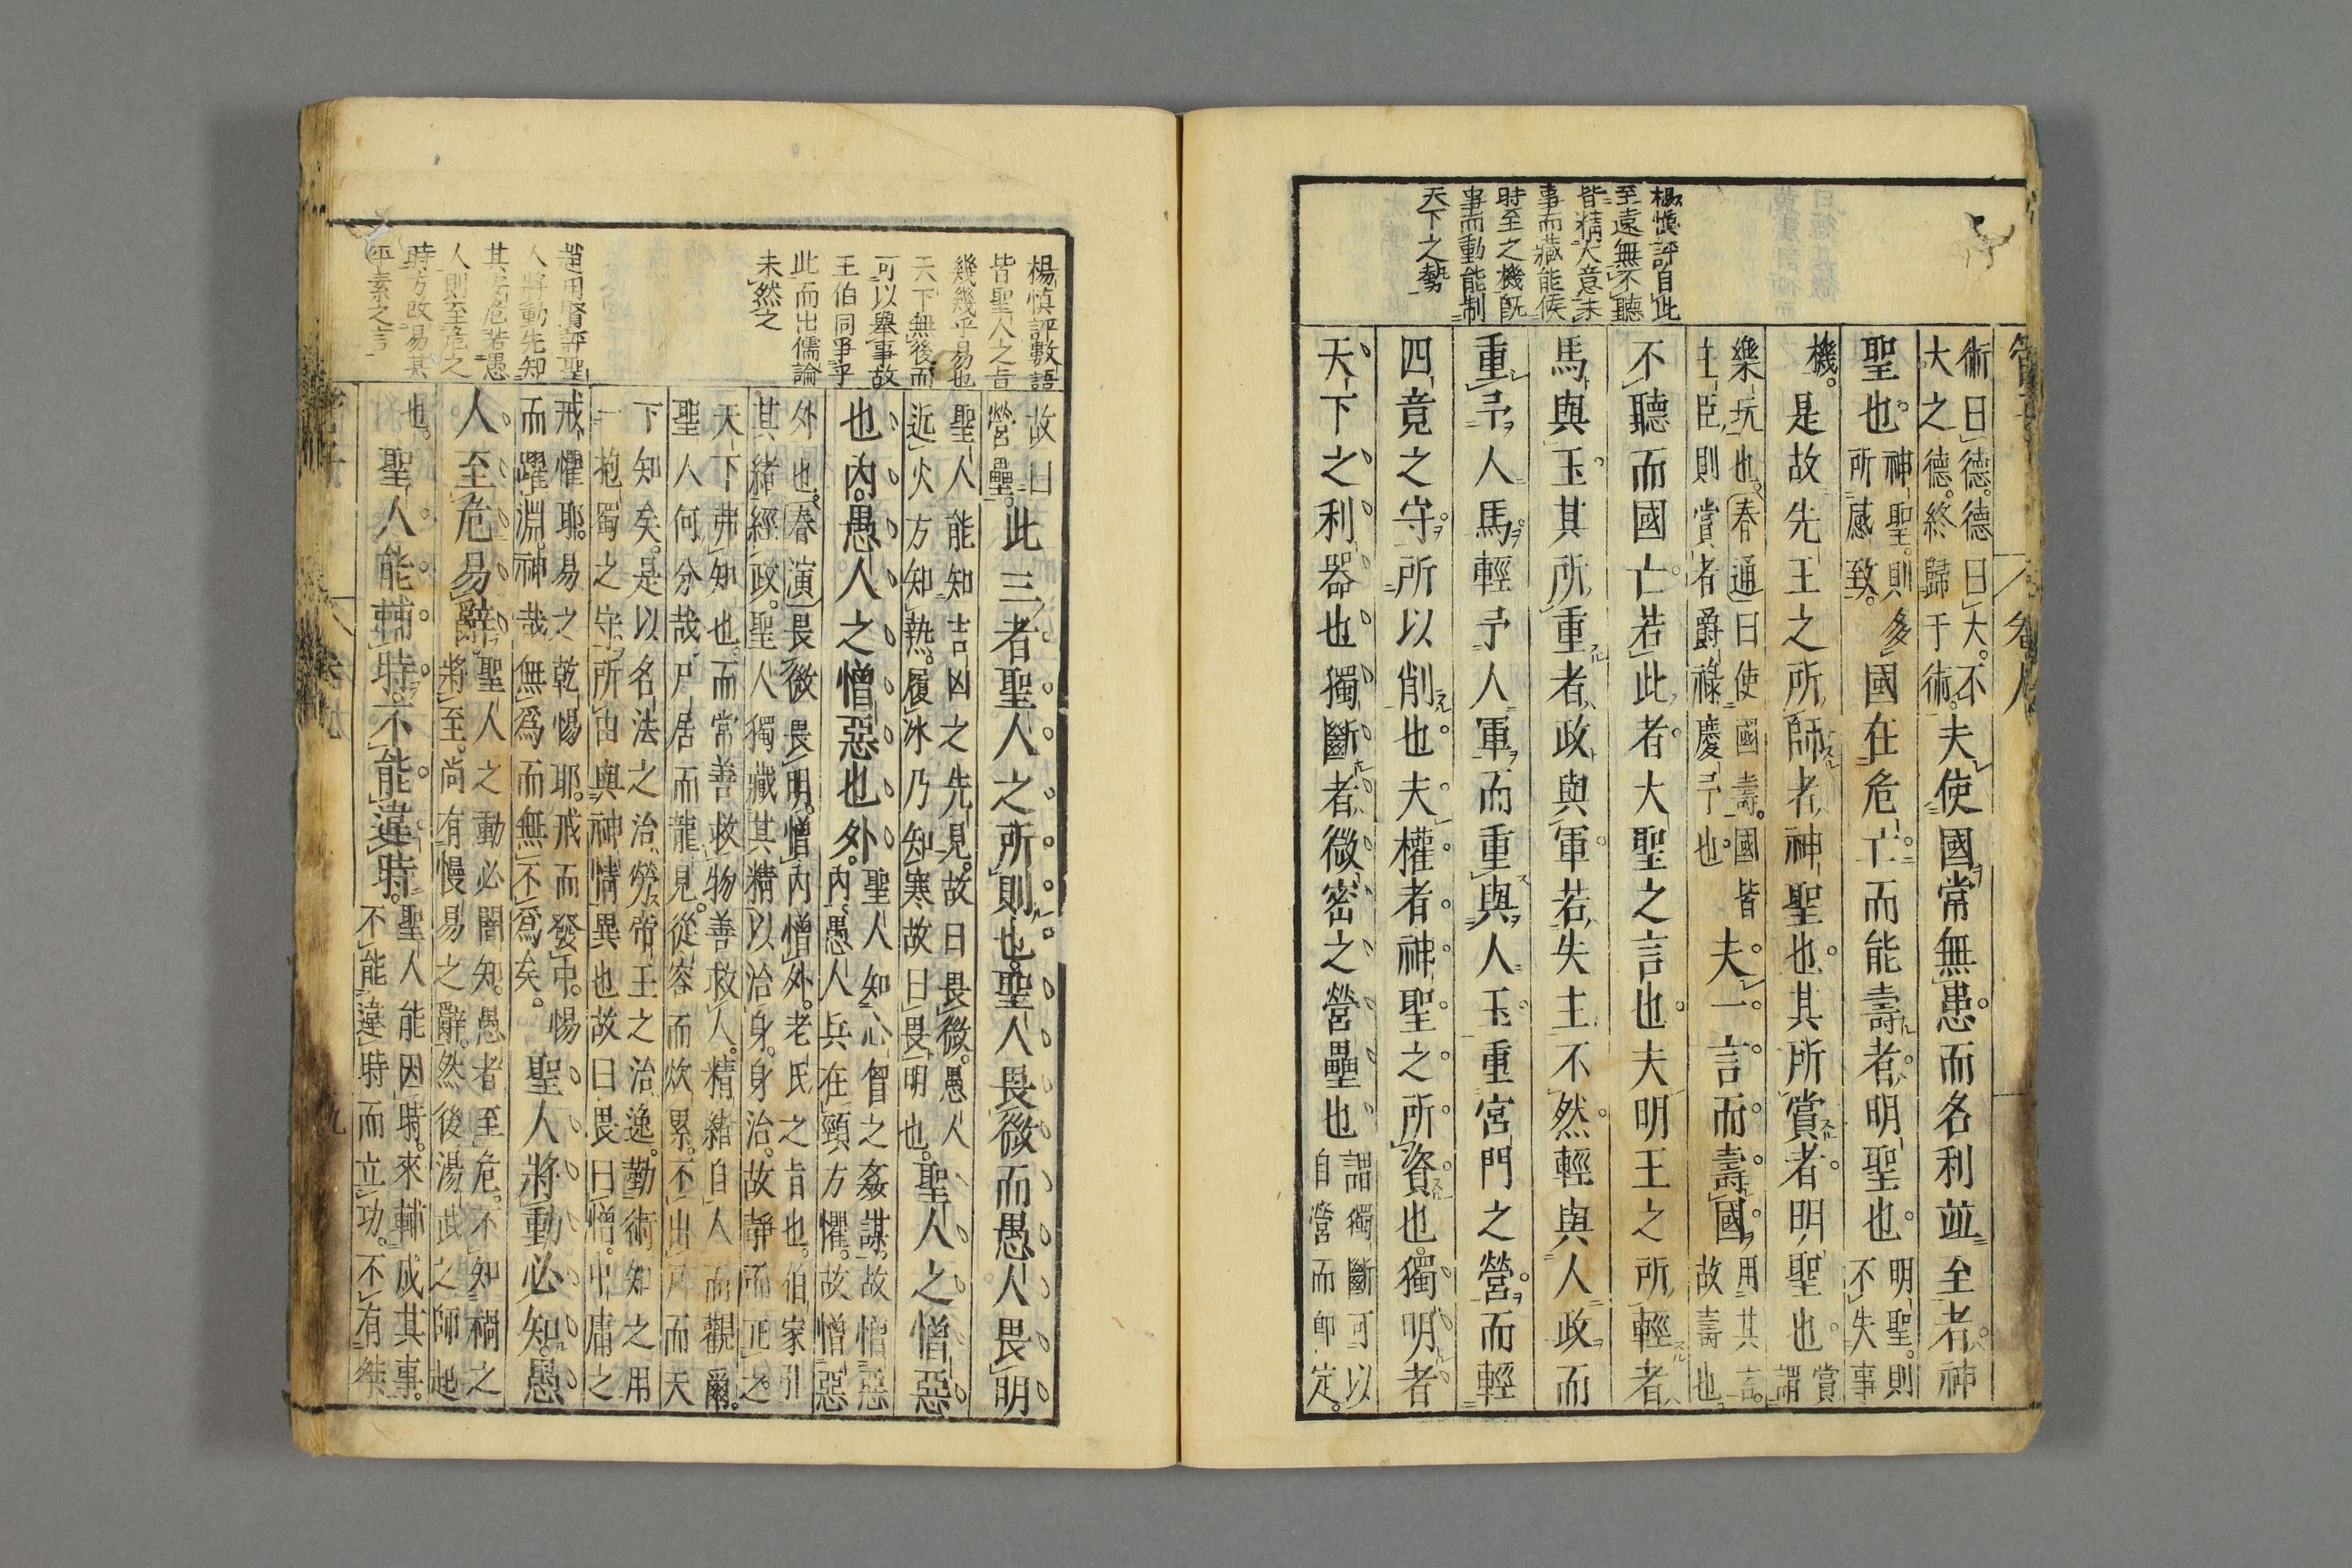 楊慎評自此
至遠無不聽
皆精大意未
事而藏能候
時至之機旣
事而動能制
天下之勢
術曰德德曰大不
大之德終歸于術
夫使國常無患而名利並至者神
聖也
神聖則多
所感致
國在危亡而能壽者明聖也
明聖則
不失事
機是故先王之所師者神聖也其所賞者明聖也
賞
謂
樂玩也春通曰使國壽國皆
主臣則賞者爵祿慶予也
夫一言而壽國
用其言
故壽也
不聽而國亡若此者大聖之言也夫明王之所輕者
馬與玉其所重者政與軍若失主不然輕與人政而
重予人馬輕予人軍而重與人玉重宮門之營而輕
四竟之守所以削也夫權者神聖之所資也獨明者
天下之利器也獨斷者微密之營壘也
謂獨斷可以
自營而卽定
楊慎評數語
皆聖人之旨
幾幾乎易也
天下無後而
可以舉事故
王伯同爭乎
此而出儒論
未然之
趙用賢評聖
人將動先知
其安危若愚
人則至危之
時方改易其
平素之言
故曰
營壘
此三者聖人之所則也聖人畏微而愚人畏明
聖人能知吉凶之先見故曰畏微愚人
近火方知熱履冰乃知寒故曰畏明也
聖人之憎惡
也內愚人之憎惡也外
聖人知心智之姦謀故憎惡
內愚人兵在頸方懼故憎惡
外也春演畏微畏明憎內憎外老氏之旨也伯家引
其緒經政聖人獨藏其精以治身身治故靜而正之
天下弗知也而常善救物善救人精緒自人而觀爾
聖人何分哉尸居而龍見從容而炊累不出戶而天
下知矣是以名法之治勞帝王之治逸勤術知之用
一抱獨之守所由與神情異也故曰畏曰憎中庸之
戒懼耶易之乾惕耶戒而發中惕
而躍淵神哉無爲而無不爲矣
聖人將動必知愚
人至危易辭
聖人之動必闇知愚者至危不知禍之
將至尚有慢易之辭然後湯武之師起
也
聖人能輔時不能違時
聖人能因時來輔成其事
不能違時而立功不有